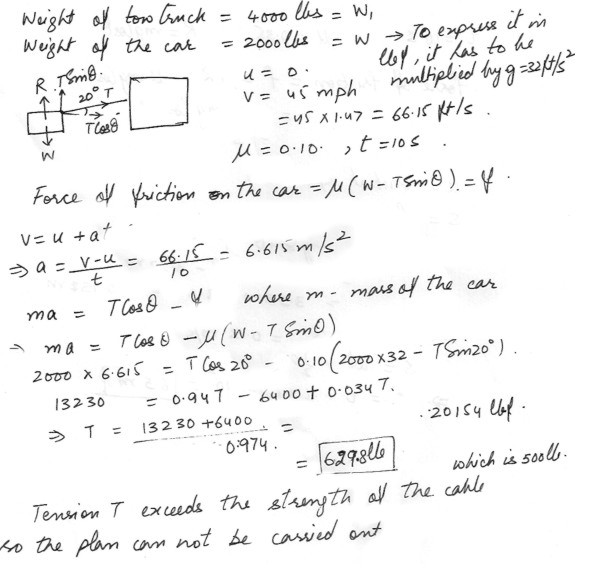 Weight of tow truck = 4000 lbs = W₁
Weight of the car = 2000 lbs = W → To express it in
lbf, it has to be
multiplied by g = 32 ft/s²
u = 0.
R TSinθ
20° T
TCosθ
W
V = 45 mph
= 45 × 1.47 = 66.15 ft/s.
μ = 0.10. , t = 10 s.
Force of friction on the car = μ(W - TSinθ). = f.
V = u + at
⇒ a = V-u / t = 66.15 / 10 = 6.615 m/s²
ma = TCosθ - f where m - mass of the car
→ ma = TCosθ - μ(W - TSinθ)
2000 × 6.615 = TCos 20° - 0.10(2000×32 - TSin20°).
13230 = 0.94T - 6400 + 0.034T.
⇒ T = 13230 + 6400 / 0.974. = 20154 lbf.
= 629.8 lb which is 500 lb.
Tension T exceeds the strength of the cable
so the plan can not be carried out